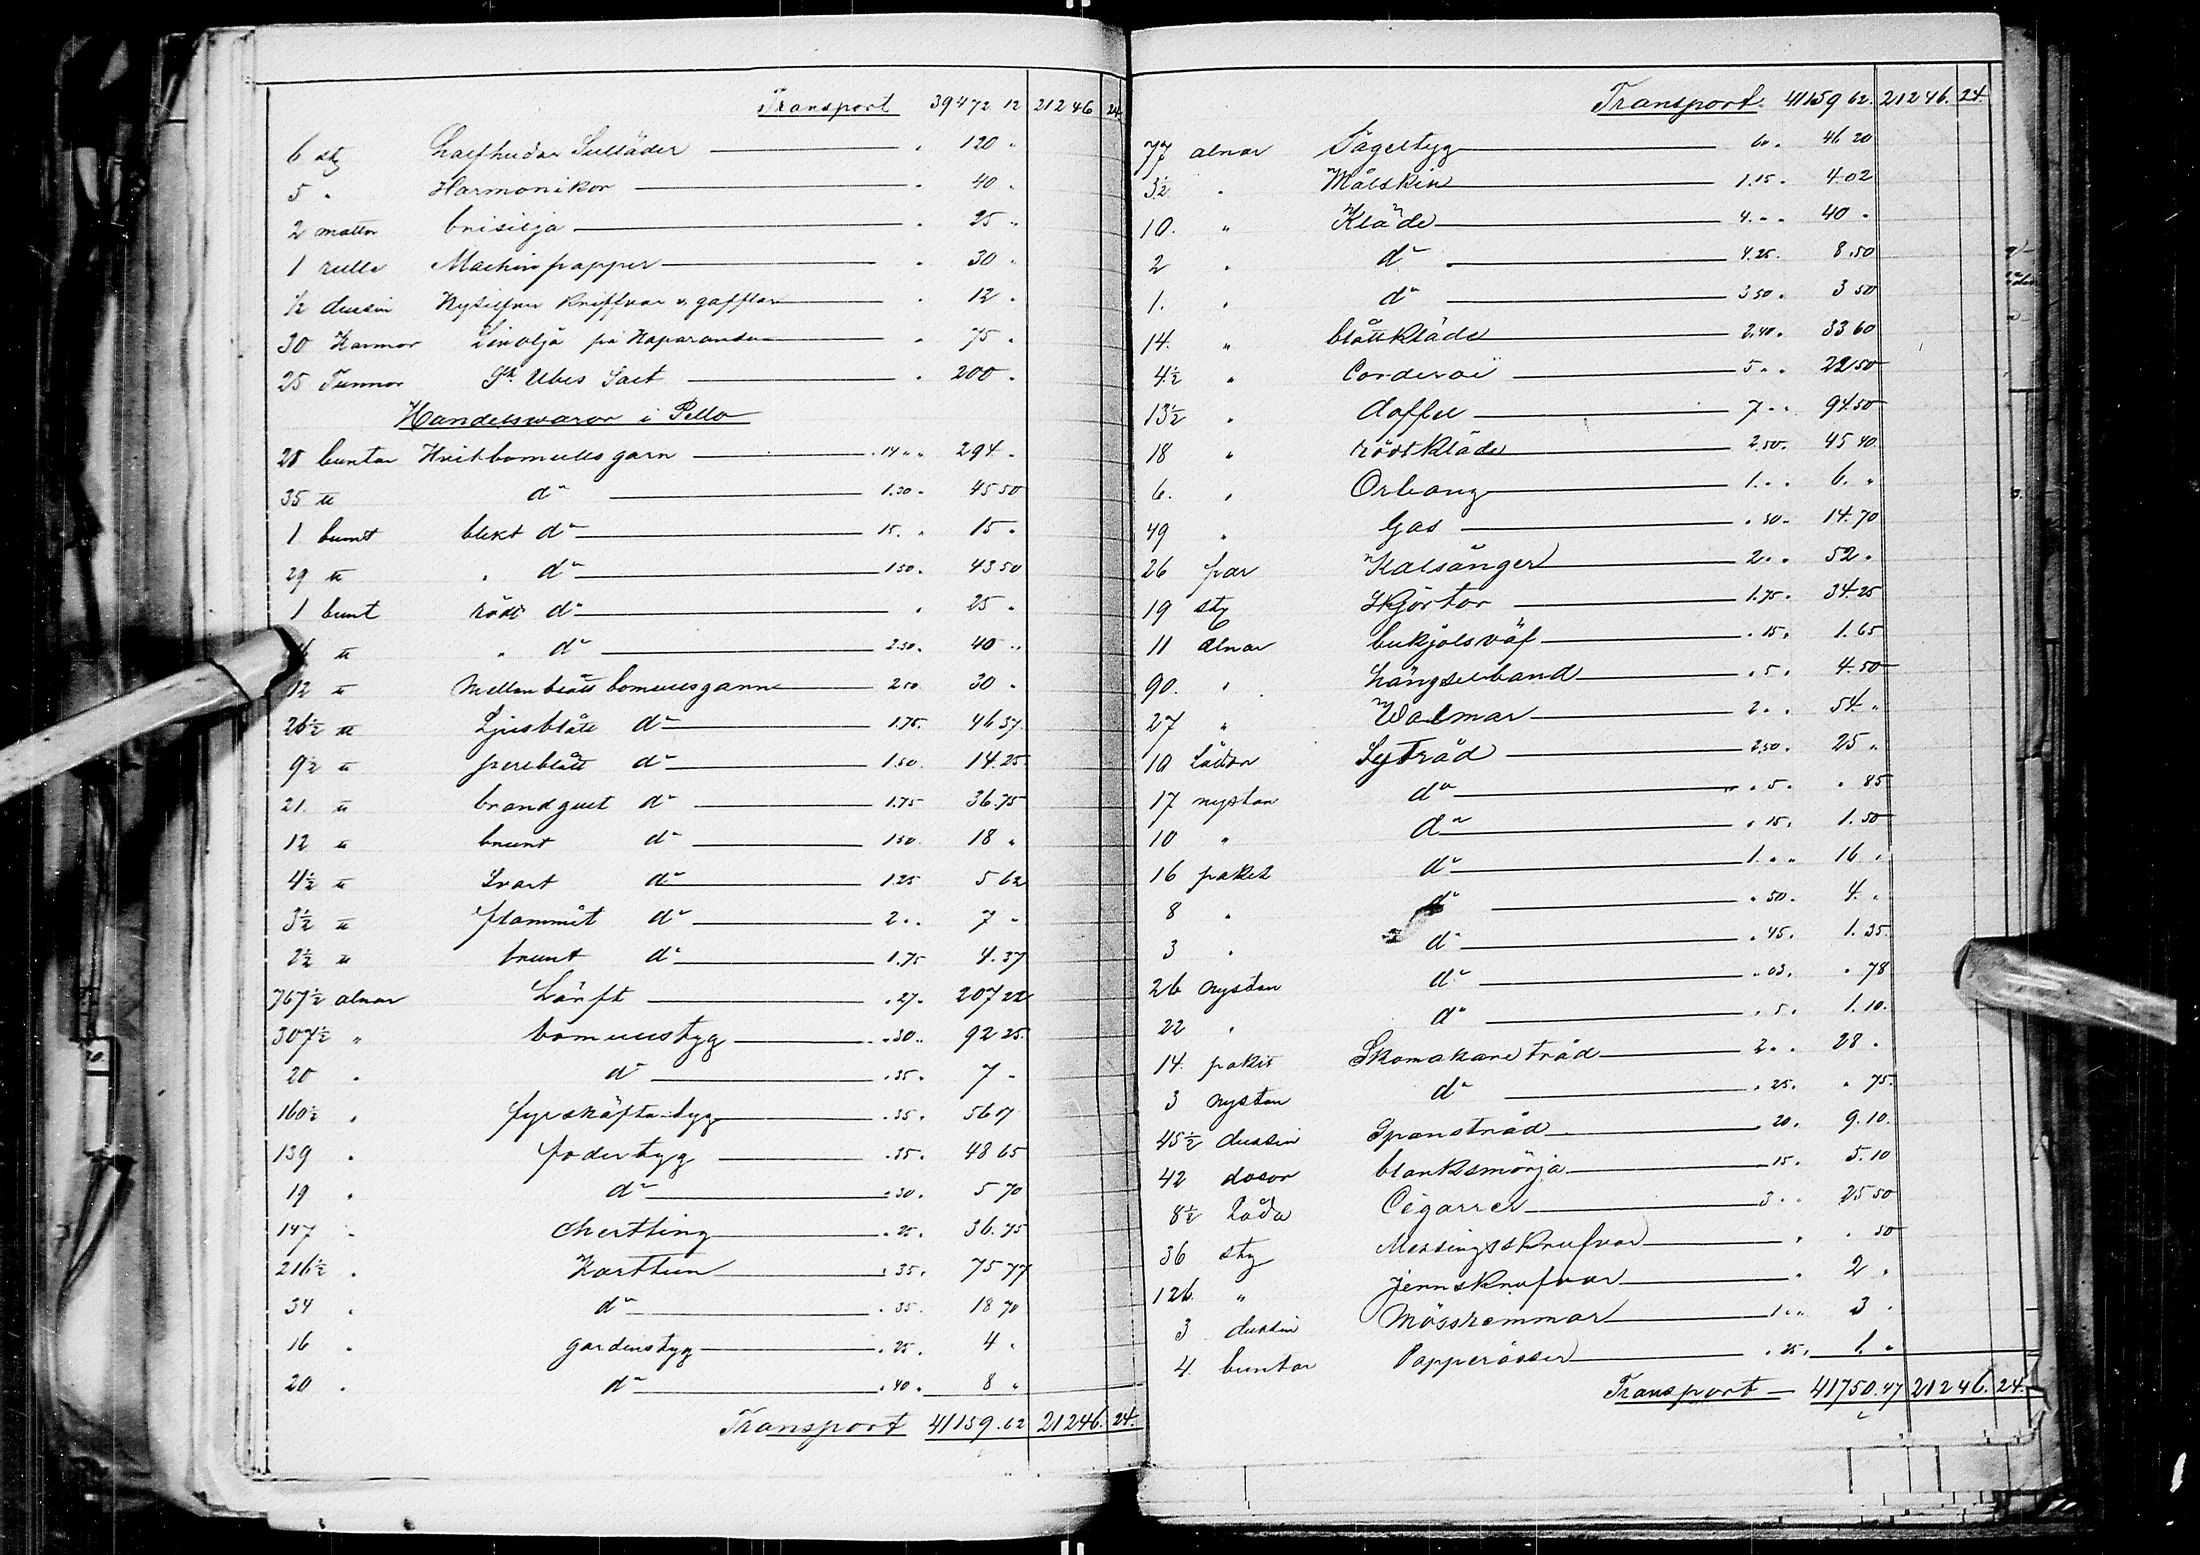 Transport 39472 12 21246 24
6 st Halfhudar Sulläder " 120 "
5 " Harmonikor " 40 "
2 mattor brisilja " 25 "
1 rulle Machinpapper " 30 "
1/2 dussin Nysilfver knifvar o. gafflar " 12 "
30 Kannor Linolja på Haparanda " 75 "
25 Tunnor St Ubes Salt " 200 "
Handelswaror i Pello
buntar Hvitbomullsgarn 14 " " 294 "
35 ℔ do 1.30 " 45 50
1 bunt blekt do 15 " " 15 "
29 ℔ " do 1.50 " 43 50
1 bunt rödt do " 25 "
℔ " do 2.50 " 40 "
12 ℔ Mellanblått bomullsgarn 2.50 30 "
26 1/2 ℔ Ljusblått do 1.75 " 46 37
9 1/2 ℔ perlblått do 1.50 14.25
21 ℔ brandgult do 1.75 36.75
12 ℔ brunt do 1.50 18 "
4 1/2 ℔ Svart do 1.25 5 62
3 1/2 ℔ flammåt do 2 " " 7 "
2 1/2 ℔ brunt do 1.75 4.37
767 1/2 alnar Lärft " 27 " 207 22
307 1/2 " bomullstyg " 30 " 92 25
20 " do " 35 " 7 "
160 1/2 " fyrskäfta tyg " 35 " 56 17
139 " fodertyg " 35 " 48 65
19 " do " 30 " 5 70
147 " Chertting " 25 " 36.75
216 1/2 " Karttun " 35 " 75 77
34 " do " 55 " 18 70
16 " gardinstyg " 25 " 4 "
20 " do " 40 " 8 "
Transport 41159.62 21246. 24.
Transport 41159 62. 21246. 24.
77 alnar Sägeltyg 60 " 46 20
3 1/2 " Målskin 1.15 " 4.02
10. " Kläde 4 " " 40 "
2 " do 4.25 " 8.50
1. " do 3.50 " 3 50
14. " blått kläde 2.40 " 33 60
4 1/2 " Corderoi 5 " " 22 50
13 1/2 " doffel 7 " " 94.50
18 " rödt kläde 2.50 " 45 40
6. " Orleang 1 " " 6. "
49 " Gas " 30 " 14.70
26 par Kalsånger 2 " " 52 "
19 st Skjörtor 1.75 " 34.25
11 alnar bukjolsväf " 15 " 1.65
90. " Hängselband " 5 " 4.50
27 " Walmar 2 " " 54 "
10 Lådor Sytråd 2.50 " 25 "
17 nystan do " 5 " " 85
10 " do " 15 " 1.50
16 paket do 1 " " 16 "
8 " do " 50 " 4. "
3 " do " 45 " 1.35
26 nystan do " 03 " " 78
22 " do " 5 " 1.10.
14 paket Skomakaretråd 2 " " 28 "
3 nystan do " 25 " " 75
45 1/2 dussin Spanstråd 20 " 9.10.
42 dosor blanksmörja 15 " 5.10
8 1/2 Låda Cigarrer 3 " " 25 50
36 st Messingsskrufvar " " 50
126 " Jernskrufvar " 2 "
3 dussin Mössremmar 1 " " 3 "
4 buntar Papperåsser " 25 " 1. "
Transport 41750.47 21246. 24.